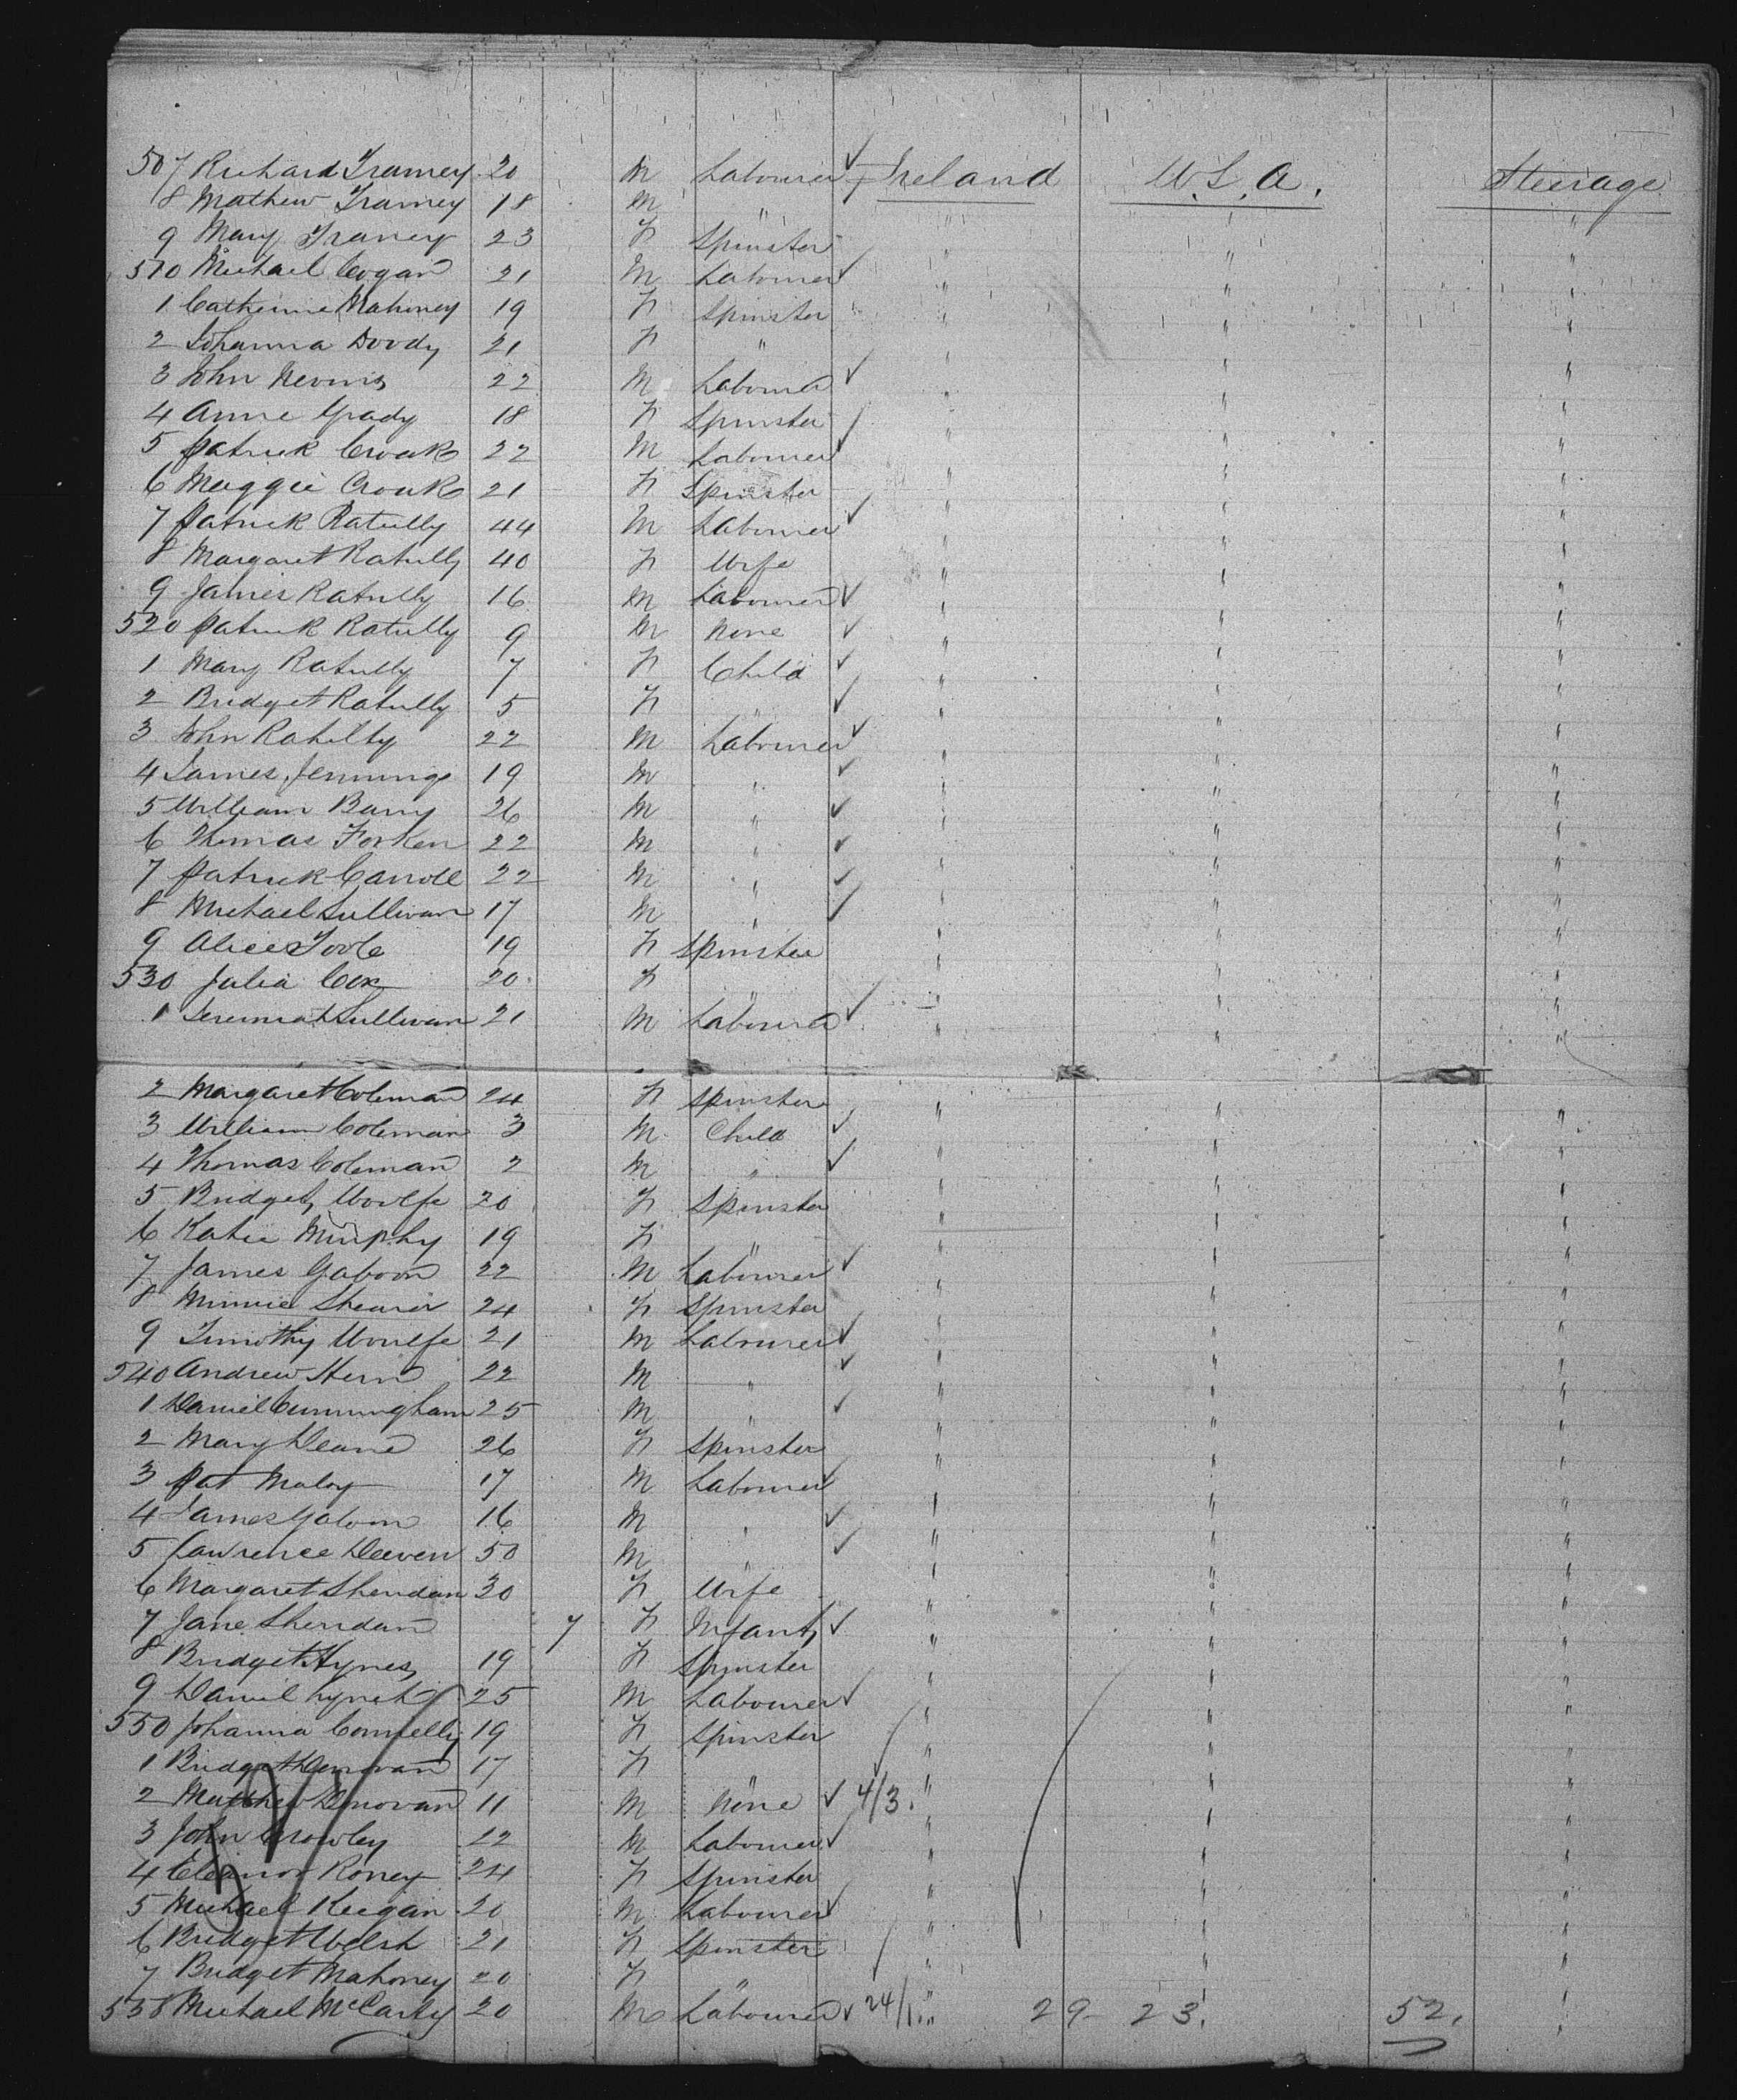 507 Richard Tramey 20 M Labourer ✓ Ireland U.S.A. Steerage
8 Mathew Tramey 18 M " " " "
9 Mary Traney 23 F Spinster " " "
510 Michael Cogan 21 M Labourer ✓ " " "
1 Catherine Mahoney 19 F Spinster " " "
2 Johanna Doody 21 F " " " "
3 John 22 M Labourer ✓ " " "
4 Anne Grady 18 F Spinster " " "
5 Patrick Croak 22 M Labourer ✓ " " "
6 Maggie Croak 21 F Spinster " " "
7 Patrick Ratully 44 M Labourer ✓ " " "
8 Margaret Ratully 40 F Wife " " "
9 James Ratully 16 M Labourer ✓ " " "
520 Patrick Ratully 9 M None ✓ " " "
1 Mary Ratully 7 F Child ✓ " " "
2 Bridget Ratully 5 F " ✓ " " "
3 John Ratilly 22 M Labourer ✓ " " "
4 James Jennings 19 M " ✓ " " "
5 William Barry 26 M " ✓ " " "
6 Thomas Forken 22 M " ✓ " " "
7 Patrick Carroll 22 M " ✓ " " "
8 Michael Sullivan 17 M " ✓ " " "
9 Alice Toole 19 F Spinster " " "
530 Julia Cox 20 F " " " "
1 Jeremiah Sullivan 21 M Labourer ✓ " " "
2 Margaret Coleman 24 F Spinster " " "
3 William Coleman 3 M Child ✓ " " "
4 Thomas Coleman 2 M " ✓ " " "
5 Bridget Woolfe 20 F Spinster " " "
6 Katie Murphy 19 F " " " "
7 James Gaboon 22 M Labourer ✓ " " "
8 Minnie Shearer 24 F Spinster " " "
9 Timothy Woulfe 21 M Labourer ✓ " " "
540 Andrew Hern 22 M " ✓ " " "
1 Daniel Cunningham 25 M " ✓ " " "
2 Mary Deane 26 F Spinster " " "
3 Pat Maloy 17 M Labourer ✓ " " "
4 James 16 M " ✓ " " "
5 Lawrence Deeven 50 M " ✓ " " "
6 Margaret Sheridan 30 F Wife " " "
7 Jane Sheridan 7 F Infant ✓ " " "
8 Bridget Hynes 19 F Spinster " " "
9 Daniel Lynch 25 M Labourer ✓ " " "
550 Johanna Connelly 19 F Spinster " " "
1 Bridget Donovan 17 F " " " "
2 Mathew Donovan 11 M None ✓ 4/3. " " "
3 John Crowley 22 M Labourer ✓ " " "
4 Eleanor Roney 24 F Spinster " " "
5 Michael Keegan 20 M Labourer ✓ " " "
6 Bridget Welsh 21 F Spinster " " "
7 Bridget Mahoney 20 F " " " "
558 Michael McCarty 20 M Labourer ✓ 24/1 " 29 23. 52.